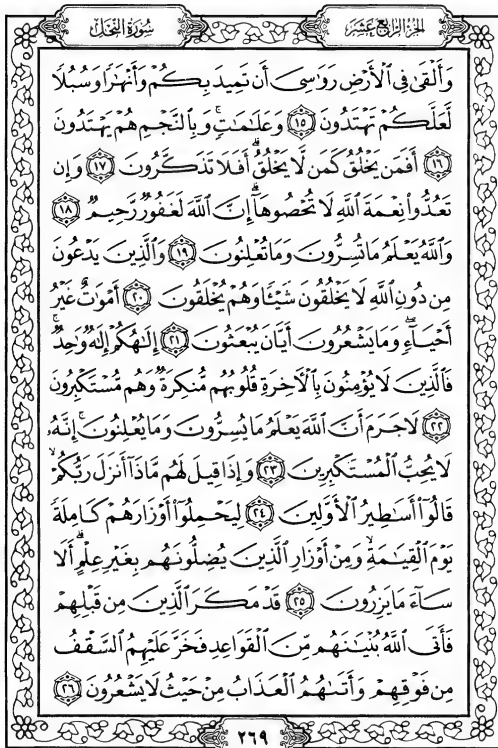 سُورَةُ النَّحْلِ
الجُزْءُ الرَّابِعَ عَشَرَ
وَأَلْقَىٰ فِى ٱلْأَرْضِ رَوَٰسِىَ أَن تَمِيدَ بِكُمْ وَأَنْهَٰرًا وَسُبُلًا
لَّعَلَّكُمْ تَهْتَدُونَ ١٥ وَعَلَٰمَٰتٍ ۚ وَبِٱلنَّجْمِ هُمْ يَهْتَدُونَ
١٦ أَفَمَن يَخْلُقُ كَمَن لَّا يَخْلُقُ ۗ أَفَلَا تَذَكَّرُونَ ١٧ وَإِن
تَعُدُّوا۟ نِعْمَةَ ٱللَّهِ لَا تُحْصُوهَآ ۗ إِنَّ ٱللَّهَ لَغَفُورٌ رَّحِيمٌ ١٨
وَٱللَّهُ يَعْلَمُ مَا تُسِرُّونَ وَمَا تُعْلِنُونَ ١٩ وَٱلَّذِينَ يَدْعُونَ
مِن دُونِ ٱللَّهِ لَا يَخْلُقُونَ شَيْـًٔا وَهُمْ يُخْلَقُونَ ٢٠ أَمْوَٰتٌ غَيْرُ
أَحْيَآءٍ ۖ وَمَا يَشْعُرُونَ أَيَّانَ يُبْعَثُونَ ٢١ إِلَٰهُكُمْ إِلَٰهٌ وَٰحِدٌ ۚ
فَٱلَّذِينَ لَا يُؤْمِنُونَ بِٱلْـَٔاخِرَةِ قُلُوبُهُم مُّنكِرَةٌ وَهُم مُّسْتَكْبِرُونَ
٢٢ لَا جَرَمَ أَنَّ ٱللَّهَ يَعْلَمُ مَا يُسِرُّونَ وَمَا يُعْلِنُونَ ۚ إِنَّهُۥ
لَا يُحِبُّ ٱلْمُسْتَكْبِرِينَ ٢٣ وَإِذَا قِيلَ لَهُم مَّاذَآ أَنزَلَ رَبُّكُمْ ۙ
قَالُوٓا۟ أَسَٰطِيرُ ٱلْأَوَّلِينَ ٢٤ لِيَحْمِلُوٓا۟ أَوْزَارَهُمْ كَامِلَةً
يَوْمَ ٱلْقِيَٰمَةِ ۙ وَمِنْ أَوْزَارِ ٱلَّذِينَ يُضِلُّونَهُم بِغَيْرِ عِلْمٍ ۗ أَلَا
سَآءَ مَا يَزِرُونَ ٢٥ قَدْ مَكَرَ ٱلَّذِينَ مِن قَبْلِهِمْ
فَأَتَى ٱللَّهُ بُنْيَٰنَهُم مِّنَ ٱلْقَوَاعِدِ فَخَرَّ عَلَيْهِمُ ٱلسَّقْفُ
مِن فَوْقِهِمْ وَأَتَىٰهُمُ ٱلْعَذَابُ مِنْ حَيْثُ لَا يَشْعُرُونَ ٢٦
٢٦٩